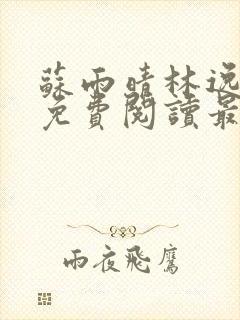 蘇雨晴林逸
免費閱讀最
雨夜飛鷹